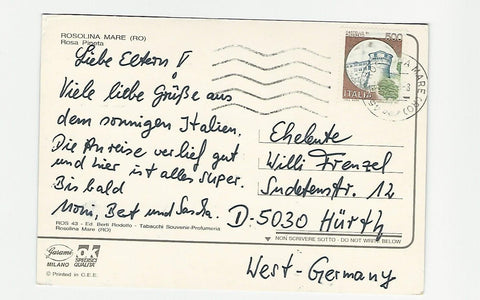 ROSOLINA MARE (RO)
Rosa Pineta
Liebe Eltern !
Viele liebe Grüße aus
dem sonnigen Italien.
Die Anreise verlief gut
und hier ist alles super.
Bis bald
Moni, Bert und Sascha.
ROS 43 - Ed. Berti Rodolfo - Tabacchi Souvenir-Profumeria
Rosolina Mare (RO)
MILANO
SPECIAL
QUALITA'
© Printed in C.E.E.
500
ITALIA
A MARE (RO)
Eheleute
Willi Frenzel
Sudetenstr. 12
D-5030 Hürth
NON SCRIVERE SOTTO - DO NOT WRITE BELOW
West-Germany